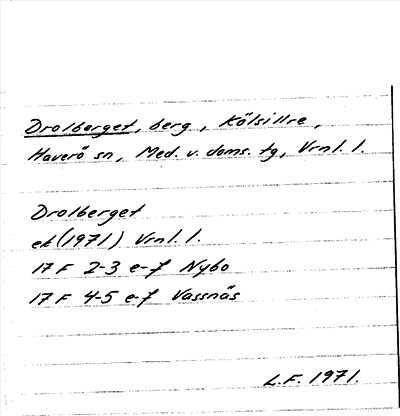 Drolberget, berg, Kölsillre,
Haverö sn, Med. v. doms. tg, Vrnl. l.
Drolberget
ek (1971) Vrnl. l.
17 F 2-3 e-f Nybo
17 F 4-5 e-f Vassnäs
L.F. 1971.